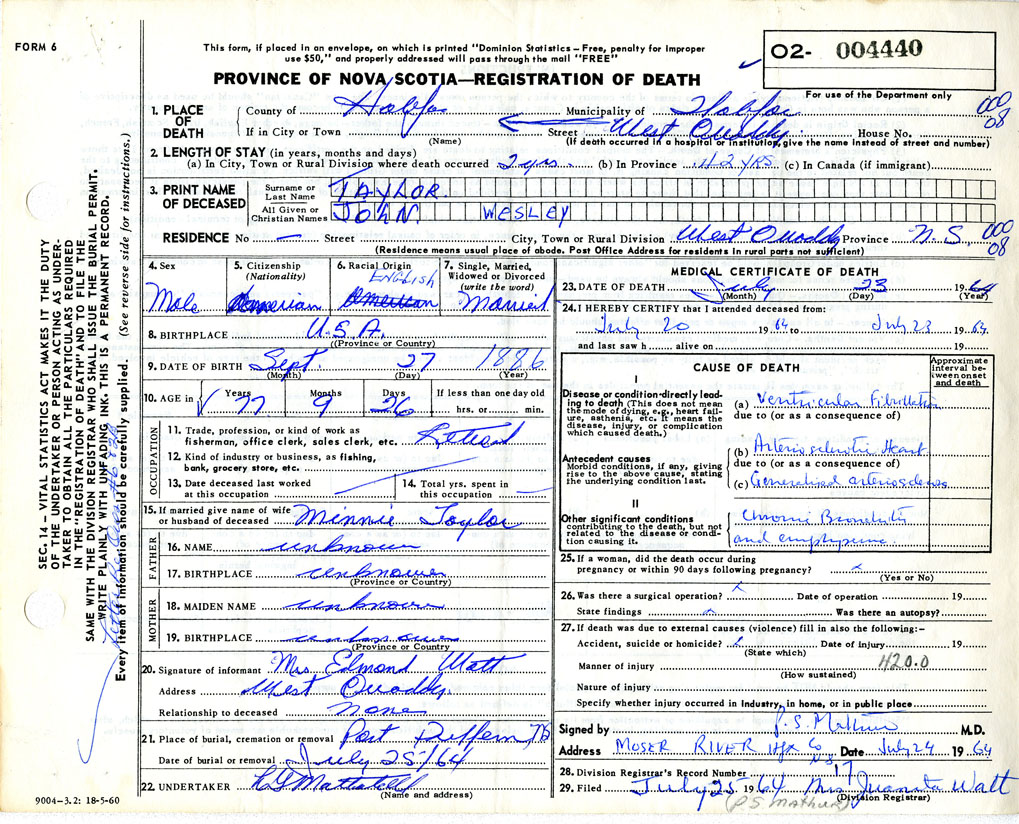 FORM 6
This form, if placed in an envelope, on which is printed "Dominion Statistics – Free, penalty for improper
use $50," and properly addressed will pass through the mail "FREE"
PROVINCE OF NOVA SCOTIA—REGISTRATION OF DEATH
O2- 004440
For use of the Department only
1. PLACE OF DEATH
County of Halifax Municipality of Halifax 000 08
If in City or Town Street West Quoddy House No.
(Name) (If death occurred in a hospital or institution, give the name instead of street and number)
2. LENGTH OF STAY (in years, months and days)
(a) In City, Town or Rural Division where death occurred 2 yrs. (b) In Province 42 YRS (c) In Canada (if immigrant)
3. PRINT NAME OF DECEASED
Surname or Last Name TAYLOR
All Given or Christian Names JOHN WESLEY
RESIDENCE No — Street City, Town or Rural Division West Quoddy Province N.S. 000 08
(Residence means usual place of abode. Post Office Address for residents in rural parts not sufficient)
4. Sex Male
5. Citizenship (Nationality) American
6. Racial Origin ENGLISH American
7. Single, Married, Widowed or Divorced (write the word) Married
8. BIRTHPLACE U.S.A.
(Province or Country)
9. DATE OF BIRTH Sept. 27 1886
(Month) (Day) (Year)
10. AGE in Years 77 Months 9 Days 26 If less than one day old
hrs. or min.
OCCUPATION
11. Trade, profession, or kind of work as
fisherman, office clerk, sales clerk, etc. Retired
12. Kind of industry or business, as fishing,
bank, grocery store, etc.
13. Date deceased last worked
at this occupation
14. Total yrs. spent in
this occupation
15. If married give name of wife
or husband of deceased Minnie Taylor
FATHER
16. NAME unknown
17. BIRTHPLACE unknown
(Province or Country)
MOTHER
18. MAIDEN NAME unknown
19. BIRTHPLACE unknown
(Province or Country
20. Signature of informant Mrs. Elmond Watt
Address West Quoddy
Relationship to deceased none
21. Place of burial, cremation or removal Port Dufferin
Date of burial or removal July 25/64
22. UNDERTAKER
(Name and address)
9004–3.2: 18-5-60
MEDICAL CERTIFICATE OF DEATH
23. DATE OF DEATH July 23 1964
(Month) (Day) (Year)
24. I HEREBY CERTIFY that I attended deceased from:
July 20 1964 to July 23 1964
and last saw h alive on 19
CAUSE OF DEATH
Approximate interval between onset and death
I
Disease or condition directly leading to death (This does not mean
the mode of dying, e.g., heart failure, asthenia, etc. It means the
disease, injury, or complication
which caused death.)
(a) Ventricular Fibrillation
due to (or as a consequence of)
Antecedent causes
Morbid conditions, if any, giving
rise to the above cause, stating
the underlying condition last.
(b) Arteriosclerotic Heart
due to (or as a consequence of)
(c) Generalized arteriosclerosis
II
Other significant conditions
contributing to the death, but not
related to the disease or condition causing it.
Chronic Bronchitis
and emphysema
25. If a woman, did the death occur during
pregnancy or within 90 days following pregnancy?
(Yes or No)
26. Was there a surgical operation? Date of operation 19
State findings Was there an autopsy?
27. If death was due to external causes (violence) fill in also the following:–
Accident, suicide or homicide? Date of injury 19
(State which)
Manner of injury 420.0
(How sustained)
Nature of injury
Specify whether injury occurred in industry, in home, or in public place
Signed by M.D.
Address MOSER RIVER Hfx Co N.S. Date July 24 1964
28. Division Registrar's Record Number 17
29. Filed July 25 1964 Mrs Juanita Watt
(Division Registrar)
(P S Mathur)
SEC. 14 – VITAL STATISTICS ACT MAKES IT THE DUTY
OF THE UNDERTAKER OR PERSON ACTING AS UNDERTAKER TO OBTAIN ALL THE PARTICULARS REQUIRED
IN THE "REGISTRATION OF DEATH" AND TO FILE THE
SAME WITH THE DIVISION REGISTRAR WHO SHALL ISSUE THE BURIAL PERMIT.
WRITE PLAINLY WITH UNFADING INK. THIS IS A PERMANENT RECORD.
Every item of information should be carefully supplied. (See reverse side for instructions.)